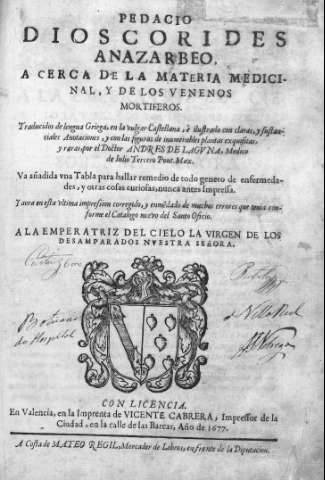 PEDACIO
DIOSCORIDES
ANAZARBEO,
A CERCA DE LA MATERIA MEDICI-
NAL, Y DE LOS VENENOS
MORTIFEROS.
Traduzidos de lengua Griega, en la vulgar Castellana, è ilustrado con claras, y sustan-
ciales Anotaciones, y con las figuras de inumerables plantas exquisitas,
y raras por el Dotor ANDRES DE LAGVNA, Medico
de Iulio Tercero Pont. Max.
Va añadida vna Tabla para hallar remedio de todo genero de enfermeda-
des, y otras cosas curiosas, nunca antes Impressa.
Y aora en esta vltima impression corregido, y emẽdado de muchos errores que tenia con-
forme el Catalogo nuevo del Santo Oficio.
A LA EMPERATRIZ DEL CIELO LA VIRGEN DE LOS
DESAMPARADOS NVESTRA SEÑORA.
de Hospital
de Villa Real
CON LICENCIA.
En Valencia, en la Imprenta de VICENTE CABRERA, Impressor de la
Ciudad, en la calle de las Barcas, Año de 1677.
A Costa de MATEO REGIL, Mercader de Libros, en frente de la Diputacion.